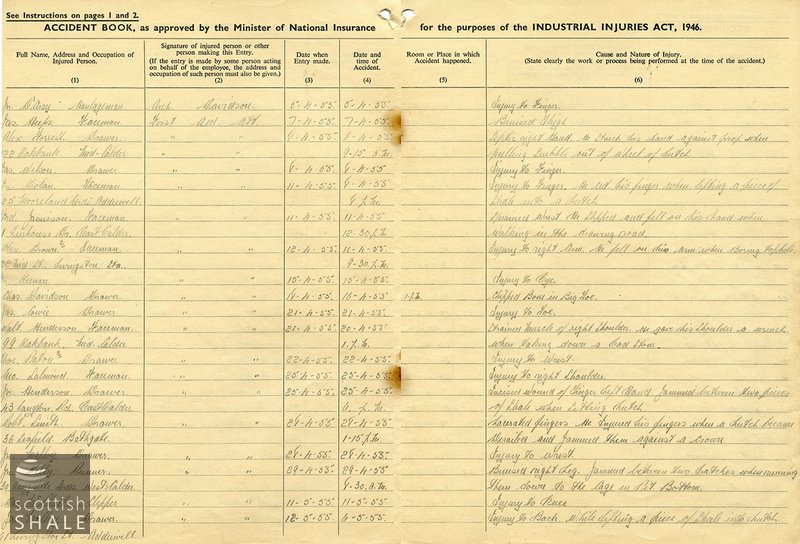 See Instructions on pages 1 and 2.
ACCIDENT BOOK, as approved by the Minister of National Insurance for the purposes of the INDUSTRIAL INJURIES ACT, 1946.
Full Name, Address and Occupation of Injured Person.
(1)
Signature of injured person or other person making this Entry.
(If the entry is made by some person acting on behalf of the employee, the address and occupation of such person must also be given.)
(2)
Date when Entry made.
(3)
Date and time of Accident.
(4)
Room or Place in which Accident happened.
(5)
Cause and Nature of Injury.
(State clearly the work or process being performed at the time of the accident.)
(6)
Davidson 5-4-55 5-4-55 Injury to Finger.
Jas. Heeps Faceman First Aid Att 7-4-55 7-4-55 Bruised Thigh
Alex Forrest Drawer " " Septic right Hand. He struck his hand against prop when
122 Oakbank Mid-Calder 9-15 a.m. pulling rubble out of wheel of hutch.
Jas. Wilson Drawer " " Injury to Finger.
Dolan Faceman " " 11-4-55 Injury to Finger. He cut his finger when lifting a piece of
25 Mooreland Addiewell shale into a hutch
Jamieson Faceman " " 11-4-55 11-4-55 Strained Wrist He slipped and fell on his hand when
East Calder 12-30 p.m. walking in the drawing road.
Alex Brown Faceman " " 12-4-55 11-4-55 Injury to right Arm. He fell on his arm when boring
Livingston Stn. 9-30
Keenan " " 15-4-55 15-4-55 Injury to Eye.
Chas. Davidson Drawer " " 18-4-55 16-4-55 Chipped Bone in Big Toe.
Jas. Lowie Drawer " " 21-4-55 21-4-55 Injury to Toe.
Walt Henderson Faceman " " 21-4-55 20-4-55 Strained Muscle of right Shoulder. He gave his Shoulder a wrench
99 Oakbank Mid-Calder 1 p.m. when taking down a bad stone.
Drawer " " 22-4-55 22-4-55 Injury to Wrist
Geo. Salmond Faceman " " 25-4-55 25-4-55 Injury to right Shoulder.
Jn. Henderson Drawer " " 25-4-55 25-4-55 Incised wound of Finger left Hand Jammed between two pieces
43 Langton Rd. East Calder p.m. of Shale when filling hutch
Robt. Smith Drawer " " Lacerated fingers He injured his fingers when a hutch became
36 Leafield Bathgate 1-15 p.m. derailed and jammed them against a crown
Drawer " " Injury to Wrist
Drawer " " 29-4-55 29-4-55 Bruised right Leg. Jammed between two hutches when running
West-Calder 9-30 a.m. them down to the Cage in Pit Bottom.
Clipper " " 11-5-55 11-5-55 Injury to Knee
Drawer " " 12-5-55 Injury to Back while lifting a piece of shale into hutch.
Livingstone St. Addiewell
scottish
SHALE